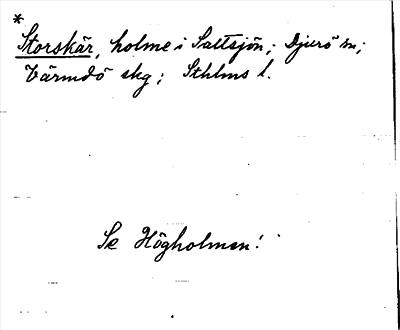 *
Storskär, holme i Saltsjön; Djurö sn;
Värmdö skg; Sthlms l.
Se Högholmen!